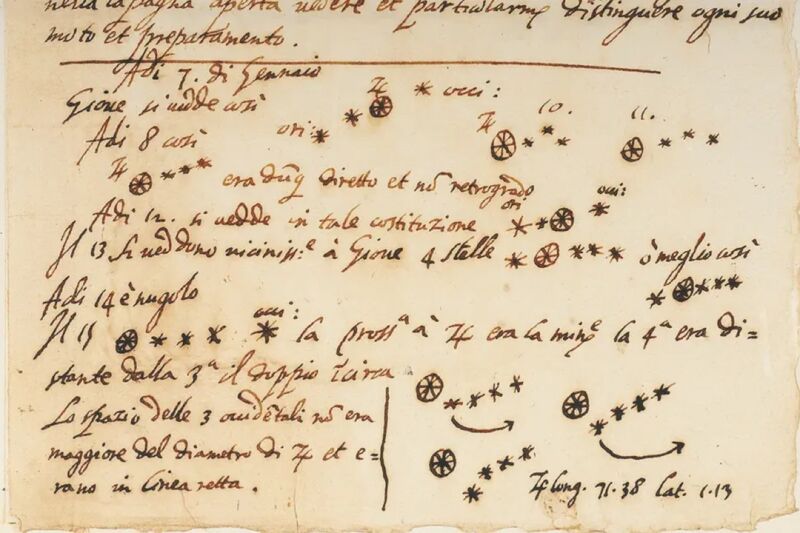 nella capagna aperta vedere et particolarm.e distinguere ogni suo
moto et preparamento.
Adi 7. di Gennaio
Giove si vedde così ori: ♃ occi:
Adi 8 così ♃ 10. 11.
♃ era dūq diretto et nō retrogrado
Adi 12. si vedde in tale costituzione ori occi:
Il 13 si veddono viciniss.e à Giove 4 stelle ò meglio così
Adi 14 è nugolo
Il 15 occi: la pross.a à ♃ era la min.e la 4.a era di=
stante dalla 3.a il doppio ī circa
Lo spazio delle 3 occidētali nō era
maggiore del diametro di ♃ et e=
rano in linea retta.
♃ long. 71.38 lat. 1.13